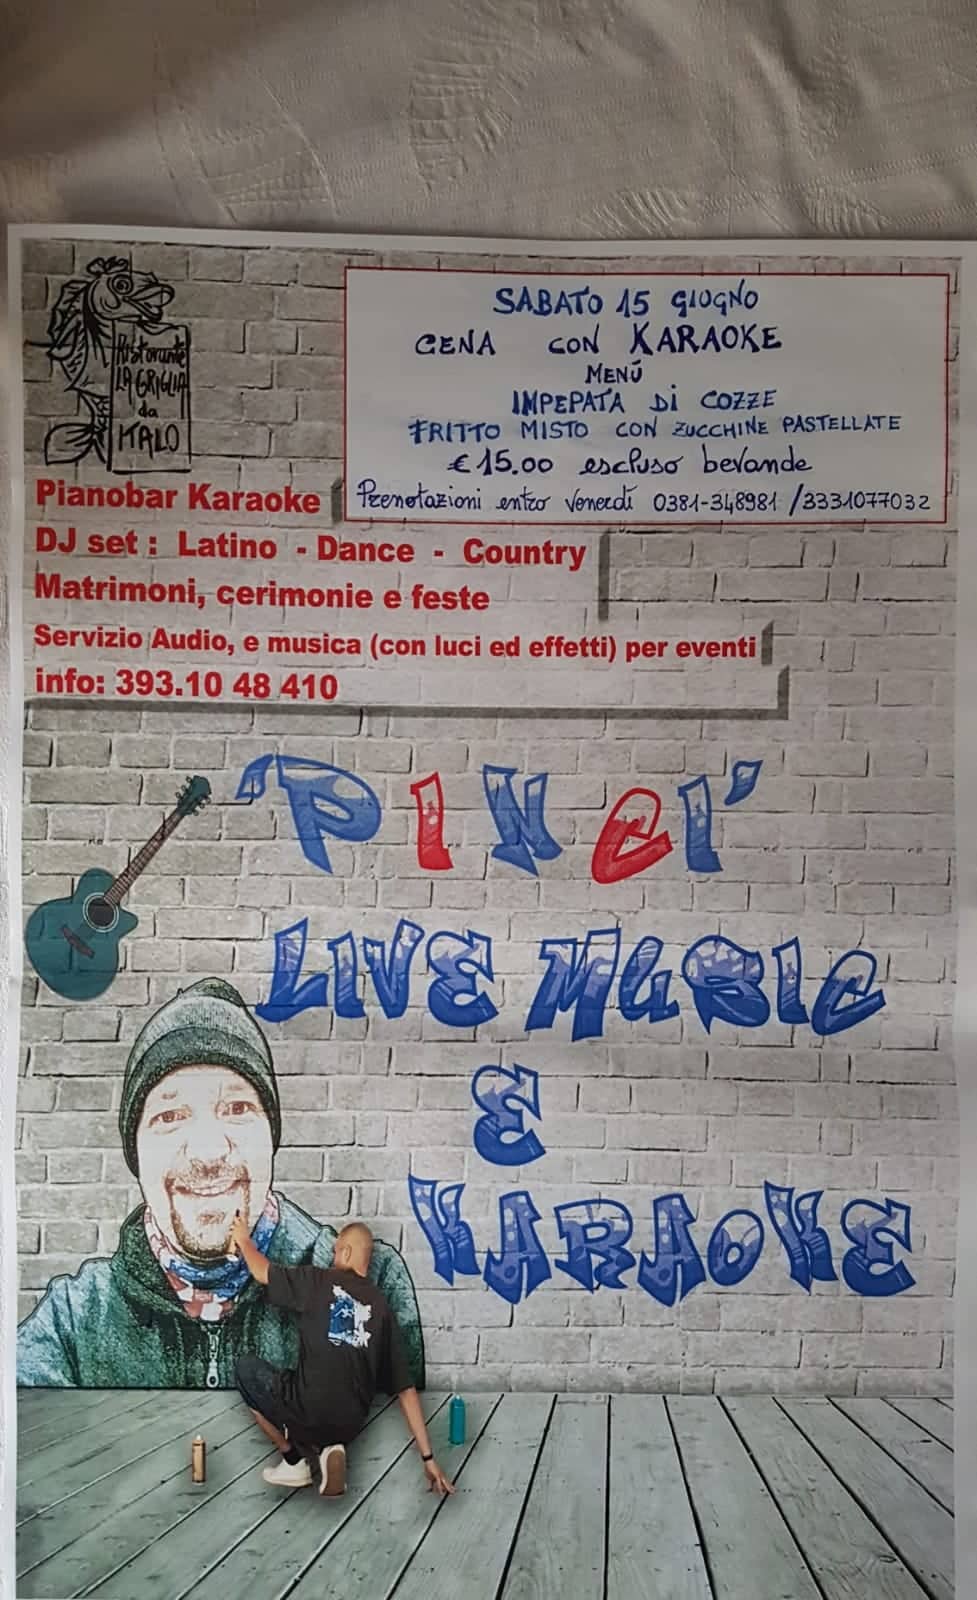 Ristorante
LA GRIGLIA
da
ITALO
SABATO 15 GIUGNO
CENA CON KARAOKE
MENÚ
IMPEPATA Di COZZE
FRITTO MISTO CON ZUCCHINE PASTELLATE
€ 15.00 escluso bevande
Prenotazioni entro Venerdì 0381-348981 /3331077032
Pianobar Karaoke
DJ set : Latino - Dance - Country
Matrimoni, cerimonie e feste
Servizio Audio, e musica (con luci ed effetti) per eventi
info: 393.10 48 410
'PINCI'
LIVE MUSIC
E
KARAOKE